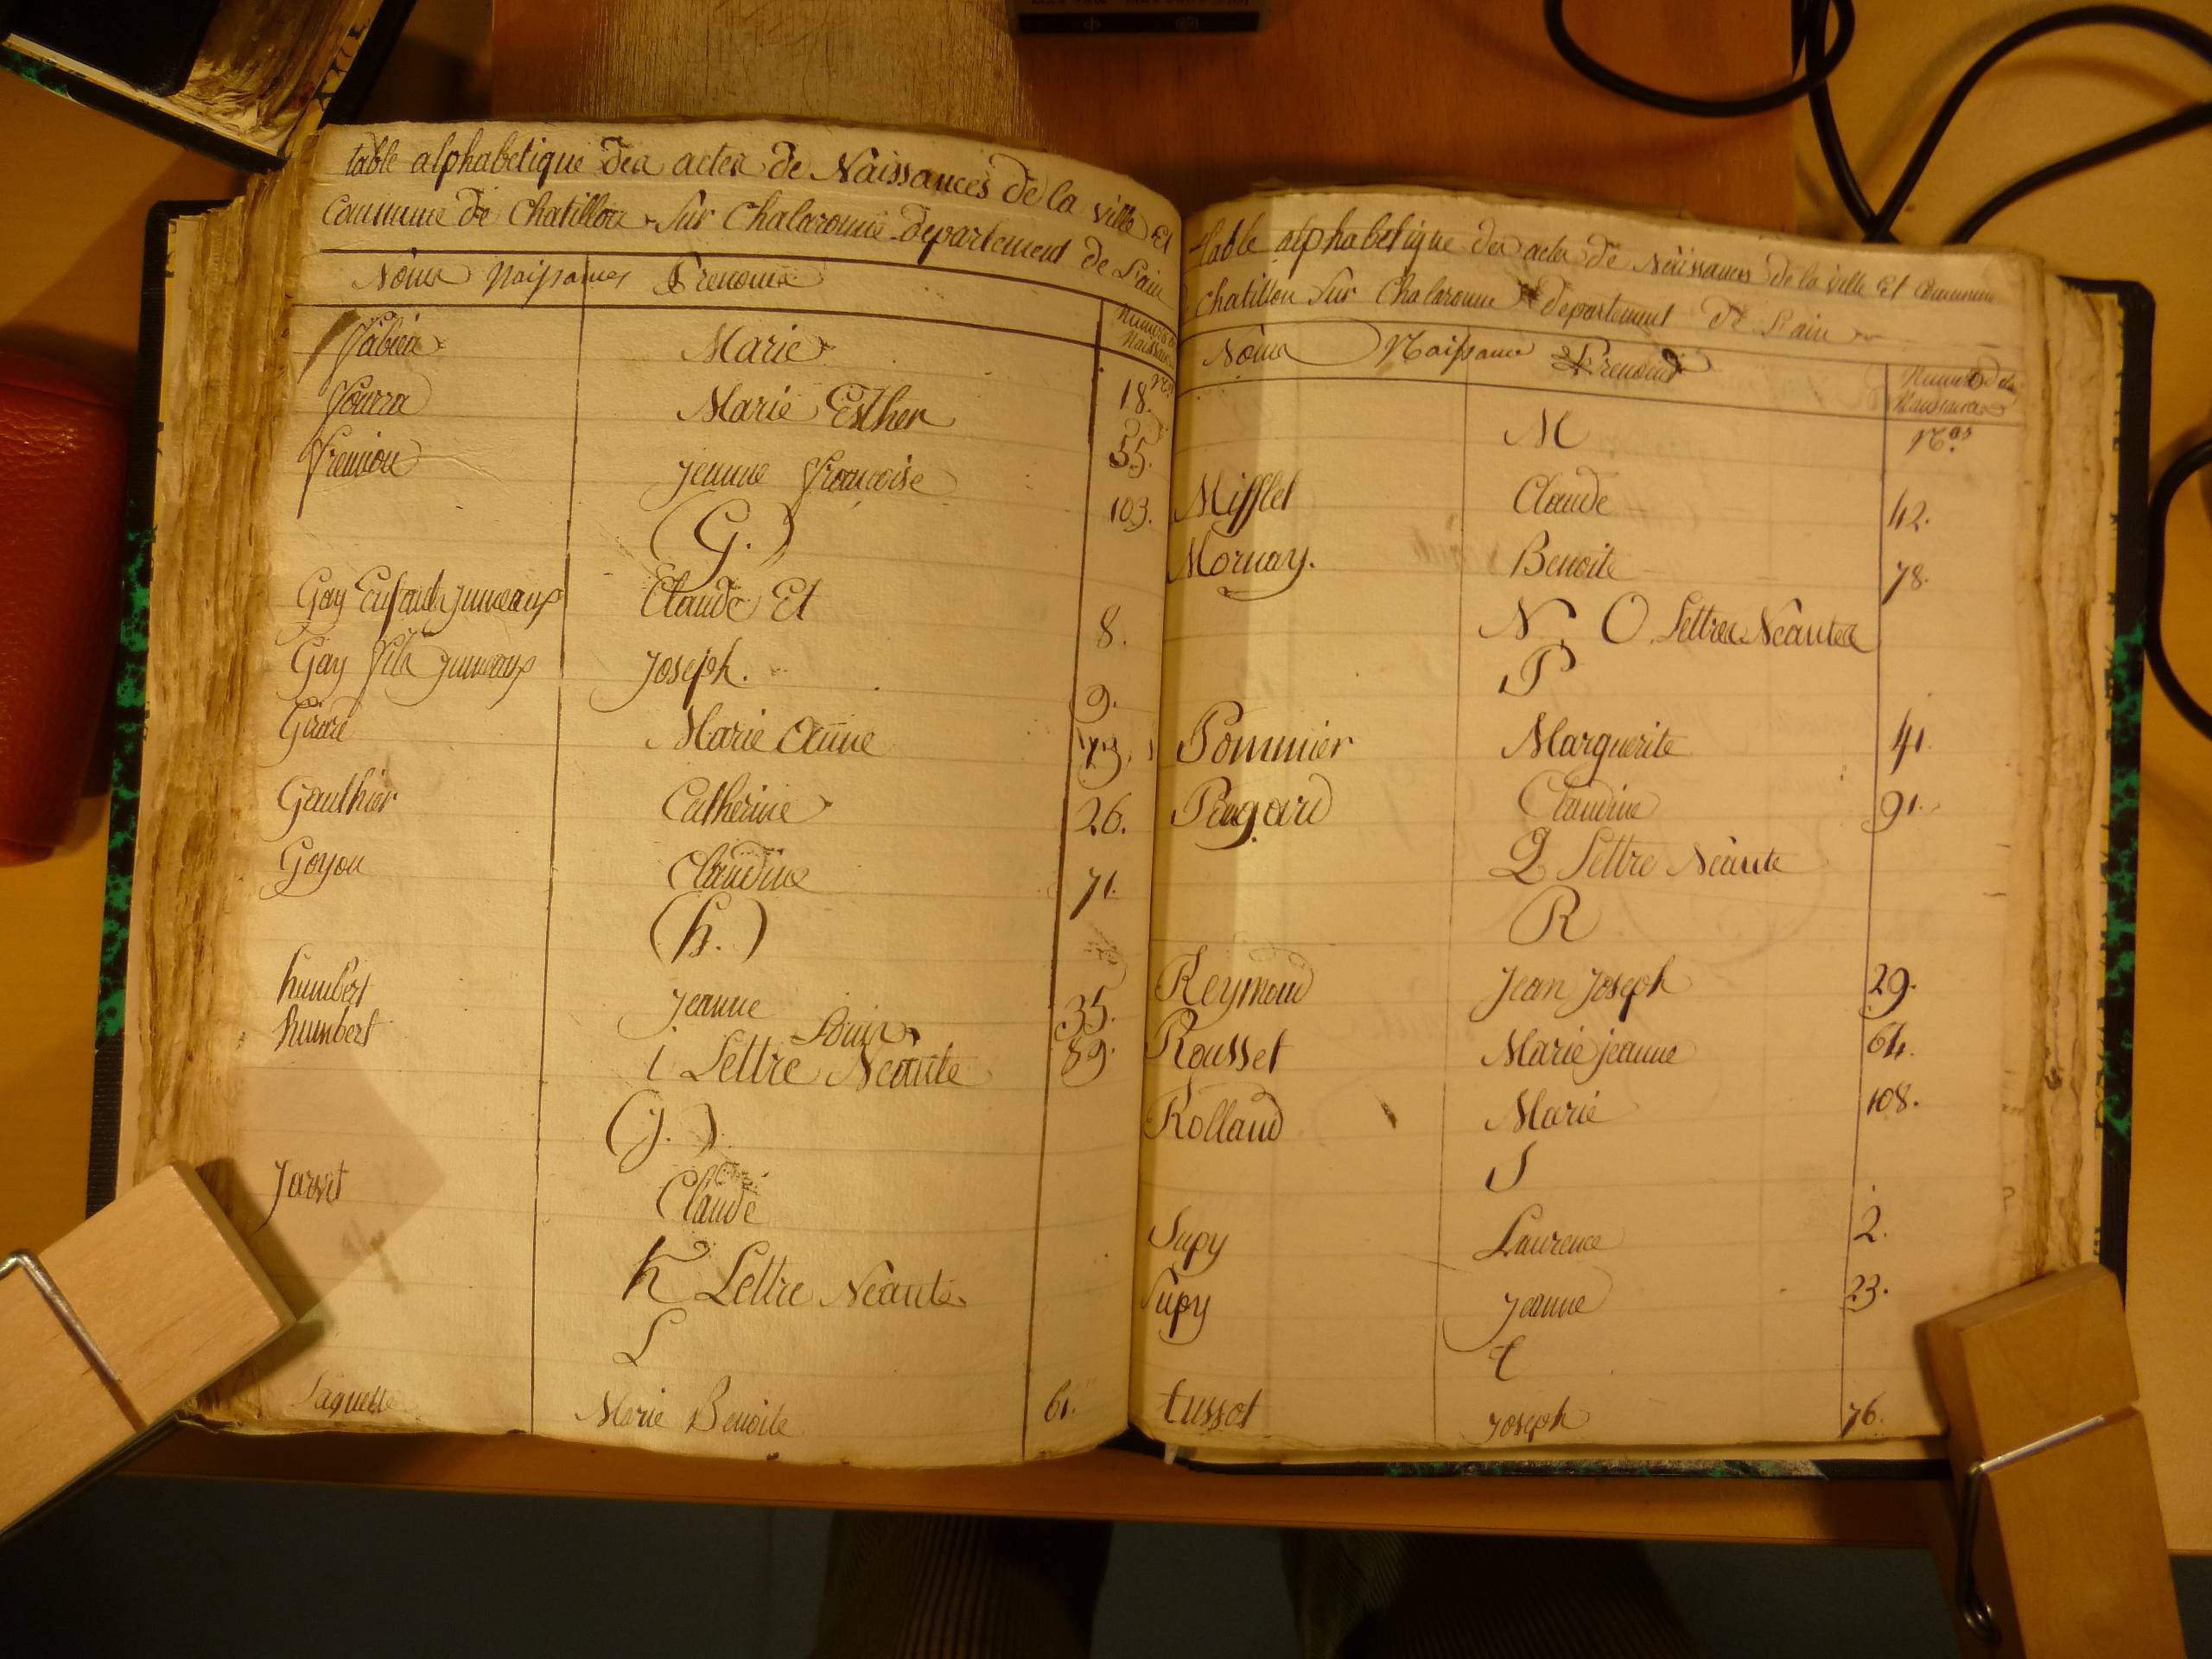 table alphabetique des actes de Naissances de la ville Et
Commune de Chatillon sur Chalaronne departement de L'ain
Noms Naissances Prenoms
Fabien Marie 18.
Fourra Marie Esther 55.
Fremion jeanne francoise 103.
(G.)
Gay Enfants jumeaux Claude Et 8.
Gay fils jumeaux joseph. 9.
Girard Marie anne
Gauthier Catherine 26.
Goyon Claudine 71.
(h.)
humbert jeanne 35.
humbert Louis 89.
i Lettre Neante
(j.)
Claude
K Lettre Neante
L
Laquette Marie Benoite 61.
table alphabetique des actes de Naissances de la ville Et Commune
chatillon sur Chalaronne departement de L'ain
Noms Naissance Prenoms Numero des Naissances
M Nos
Mifflet Claude 42.
Mornay. Benoite 78.
N, O. Lettres Neantes
P
Pommier Marguerite 41.
Claudine 91.
Q Lettre Neante
R
Reymond jean joseph 29.
Rousset Marie jeanne 64.
Rolland Marie 108.
S
Supy Laurence 2.
Supy jeanne 23.
t
tussot joseph 76.